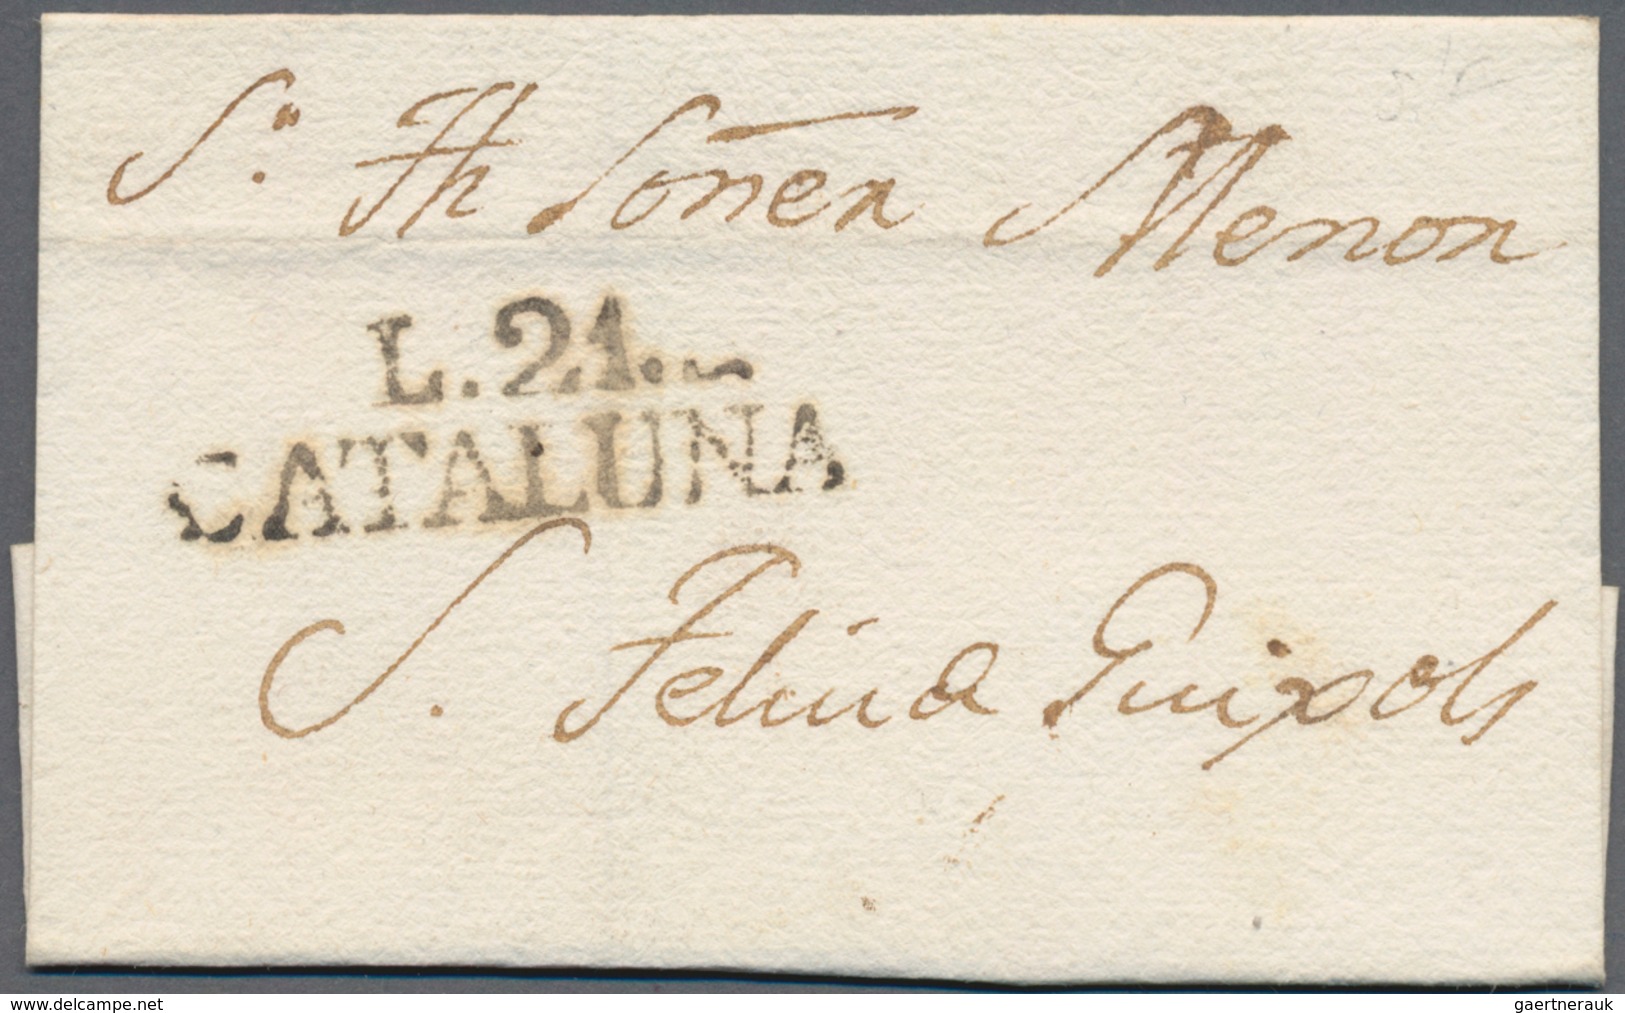 Sr. Fh Soñer Menor
L. 21.~
CATALUÑA
S. Feliu d Guixols
www.delcampe.net
gaertnerauk